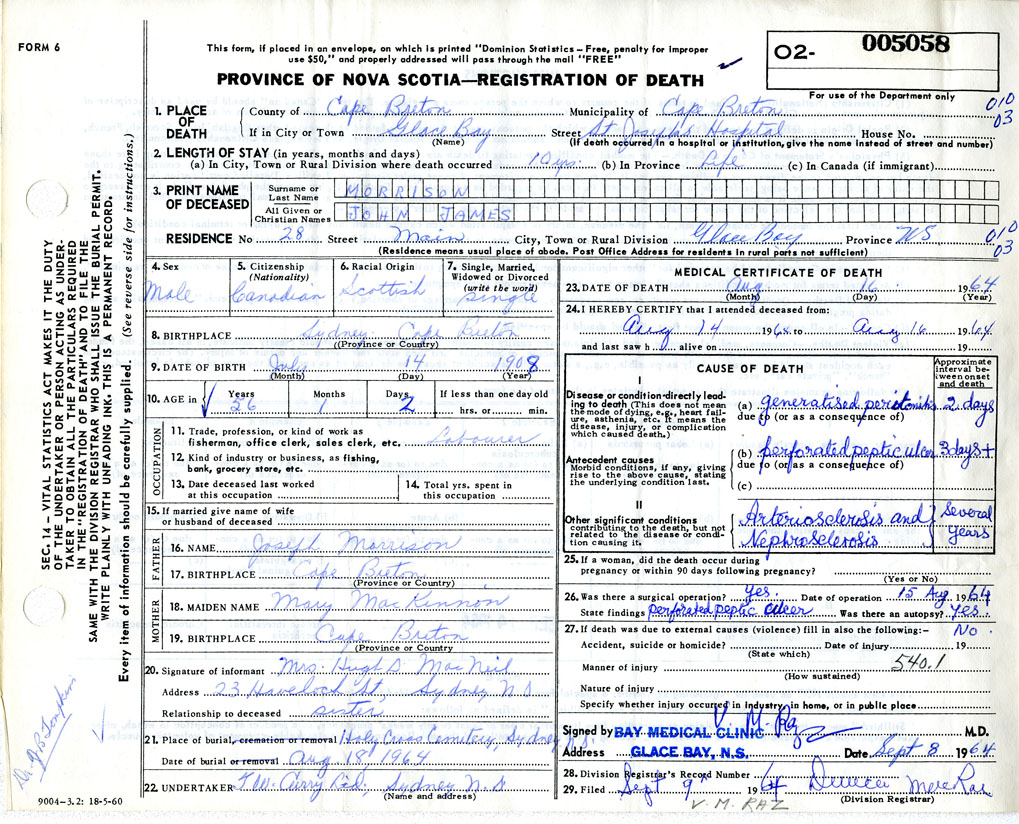 FORM 6
This form, if placed in an envelope, on which is printed "Dominion Statistics – Free, penalty for improper
use $50," and properly addressed will pass through the mail "FREE"
O2- 005058
For use of the Department only
PROVINCE OF NOVA SCOTIA—REGISTRATION OF DEATH
1. PLACE OF DEATH { County of Cape Breton Municipality of Cape Breton 010
If in City or Town Glace Bay Street St Joseph's Hospital House No. 03
(Name) (If death occurred in a hospital or institution, give the name instead of street and number)
2. LENGTH OF STAY (in years, months and days)
(a) In City, Town or Rural Division where death occurred 10 yrs. (b) In Province Life (c) In Canada (if immigrant)
3. PRINT NAME OF DECEASED
Surname or Last Name MORRISON
All Given or Christian Names JOHN JAMES
RESIDENCE No 28 Street Main City, Town or Rural Division Glace Bay Province NS 010
03
(Residence means usual place of abode. Post Office Address for residents in rural parts not sufficient)
4. Sex
Male
5. Citizenship (Nationality)
Canadian
6. Racial Origin
Scottish
7. Single, Married, Widowed or Divorced (write the word)
single
8. BIRTHPLACE Sydney Cape Breton
(Province or Country)
9. DATE OF BIRTH July 14 1908
(Month) (Day) (Year)
10. AGE in Years Months Days If less than one day old
26 1 2 hrs. or min.
OCCUPATION
11. Trade, profession, or kind of work as
fisherman, office clerk, sales clerk, etc. Labourer
12. Kind of industry or business, as fishing,
bank, grocery store, etc.
13. Date deceased last worked
at this occupation
14. Total yrs. spent in
this occupation
15. If married give name of wife
or husband of deceased
FATHER
16. NAME Joseph Morrison
17. BIRTHPLACE Cape Breton
(Province or Country)
MOTHER
18. MAIDEN NAME Mary MacKinnon
19. BIRTHPLACE Cape Breton
(Province or Country)
20. Signature of informant Mrs. Hugh D. MacNeil
Address 23 Havelock St, Sydney N.S
Relationship to deceased sister
21. Place of burial, cremation or removal Holy Cross Cemetery, Sydney N.S.
Date of burial or removal Aug 18, 1964
22. UNDERTAKER T.W. Curry Ltd., Sydney N.S
(Name and address)
MEDICAL CERTIFICATE OF DEATH
23. DATE OF DEATH Aug 16 1964
(Month) (Day) (Year)
24. I HEREBY CERTIFY that I attended deceased from:
Aug 14 1964 to Aug 16 1964
and last saw h alive on 19
CAUSE OF DEATH
Approximate interval between onset and death
I
Disease or condition directly leading to death (This does not mean
the mode of dying, e.g., heart failure, asthenia, etc. It means the
disease, injury, or complication
which caused death.)
(a) generalised peritonitis 2 days
due to (or as a consequence of)
Antecedent causes
Morbid conditions, if any, giving
rise to the above cause, stating
the underlying condition last.
(b) perforated peptic ulcer 3 days+
due to (or as a consequence of)
(c)
II
Other significant conditions
contributing to the death, but not
related to the disease or condition causing it.
Arteriosclerosis and
Nephrosclerosis
Several
years
25. If a woman, did the death occur during
pregnancy or within 90 days following pregnancy?
(Yes or No)
26. Was there a surgical operation? Yes. Date of operation 15 Aug 1964
State findings perforated peptic ulcer Was there an autopsy? Yes.
27. If death was due to external causes (violence) fill in also the following:– No.
Accident, suicide or homicide? Date of injury 19
(State which)
540.1
Manner of injury
(How sustained)
Nature of injury
Specify whether injury occurred in industry, in home, or in public place
Signed by BAY MEDICAL CLINIC V. M. Raz M.D.
Address GLACE BAY, N.S. Date Sept 8 1964
28. Division Registrar's Record Number
29. Filed Sept 9th 1964 MacRae
V. M. RAZ
(Division Registrar)
SEC. 14 – VITAL STATISTICS ACT MAKES IT THE DUTY
OF THE UNDERTAKER OR PERSON ACTING AS UNDERTAKER
TO OBTAIN ALL THE PARTICULARS REQUIRED
IN THE "REGISTRATION OF DEATH" AND TO FILE THE
SAME WITH THE DIVISION REGISTRAR WHO SHALL ISSUE THE BURIAL PERMIT.
WRITE PLAINLY WITH UNFADING INK. THIS IS A PERMANENT RECORD.
Every item of information should be carefully supplied. (See reverse side for instructions.)
9004–3.2: 18-5-60